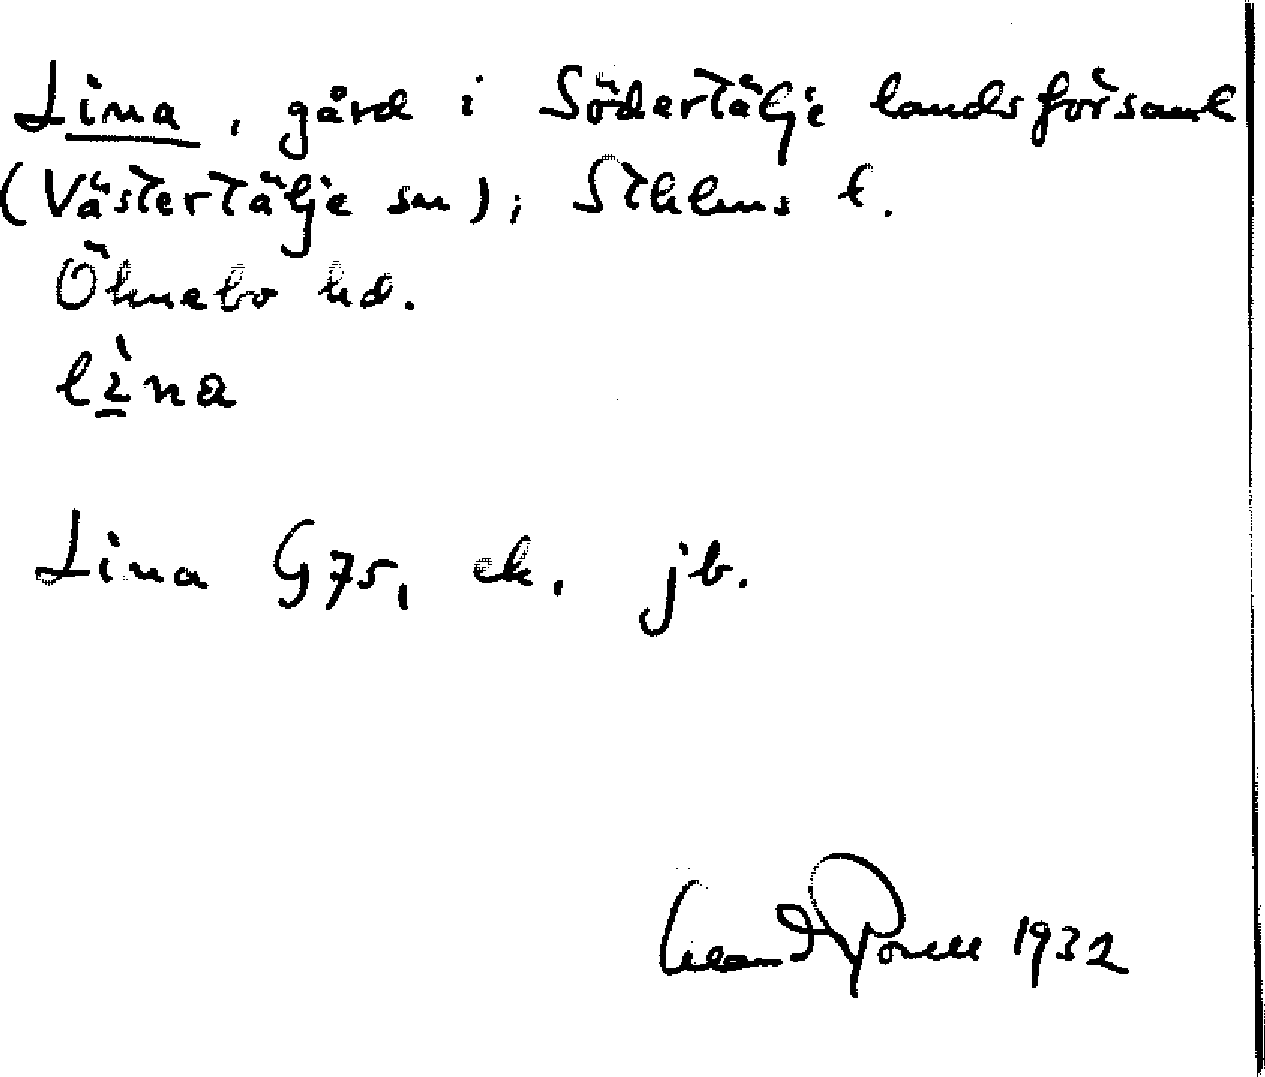 Lina, gård i Södertälje landsförsaml
(Västertälje sn); Sthlms l.
Öknebo hd.
lìna
Lina G 75, ek. jb.
1932